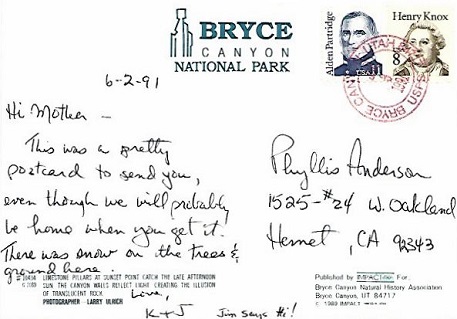 BRYCE
CANYON
NATIONAL PARK
Alden Partridge
Henry Knox
USA 11
8
6-2-91
Hi Mother -
This was a pretty
postcard to send you,
even though we will probably
be home when you get it.
There was snow on the trees &
ground here.
Love,
K + J
Jim says Hi!
Phyllis Anderson
1525-#24 W. Oakland
Hemet, CA 92343
LIMESTONE PILLARS AT SUNSET POINT CATCH THE LATE AFTERNOON
SUN. THE CANYON WALLS REFLECT LIGHT CREATING THE ILLUSION
OF TRANSLUCENT ROCK.
PHOTOGRAPHER - LARRY ULRICH
Published by IMPACT For:
Bryce Canyon Natural History Association
Bryce Canyon, UT 84717
© 1989 IMPACT